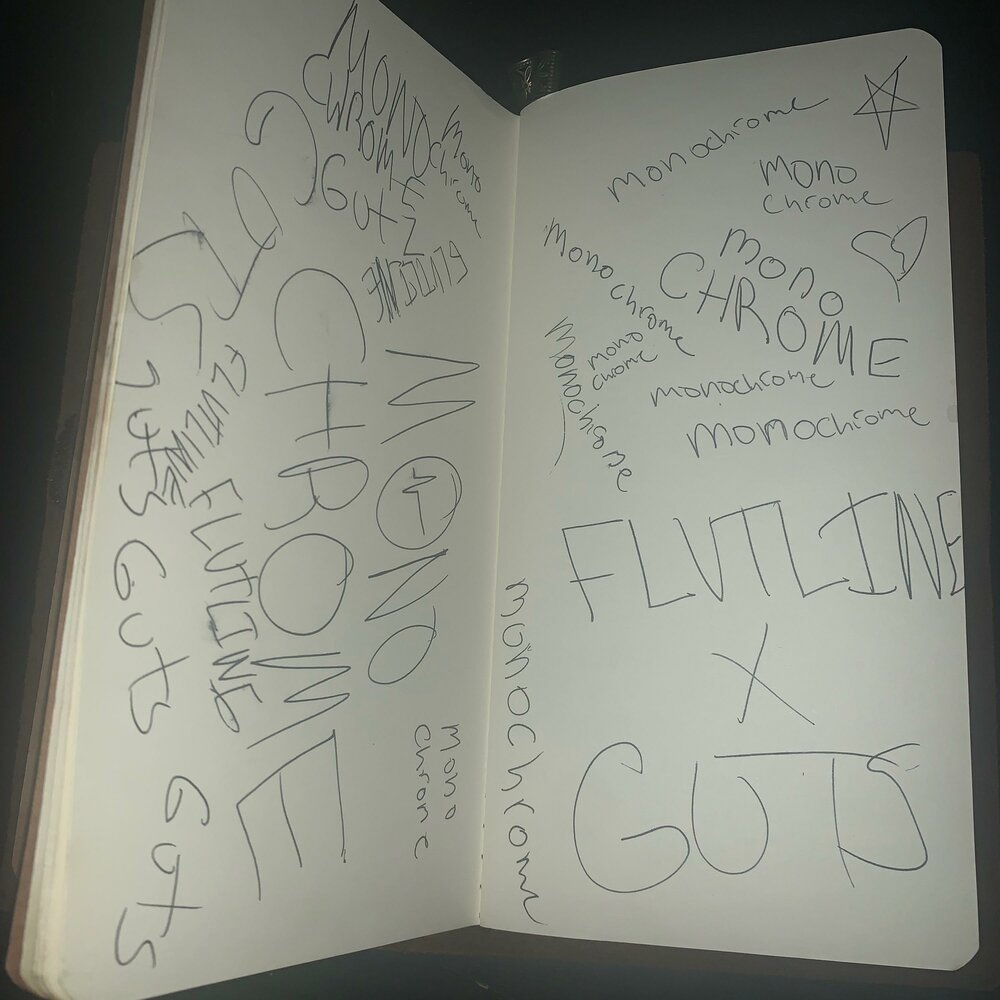 MONO
CHROME
GUTZ
Mono
Chrome
GUTS
FLUTLINE
FLUTLINE
GUTS
GUTS
GUTS
MONO
CHROME
mono
chrome
monochrome
mono
chrome
mono
CHROME
monochrome
mono
chrome
monochrome
monochrome
monochrome
FLUTLINE
X
GUTS
monochrome